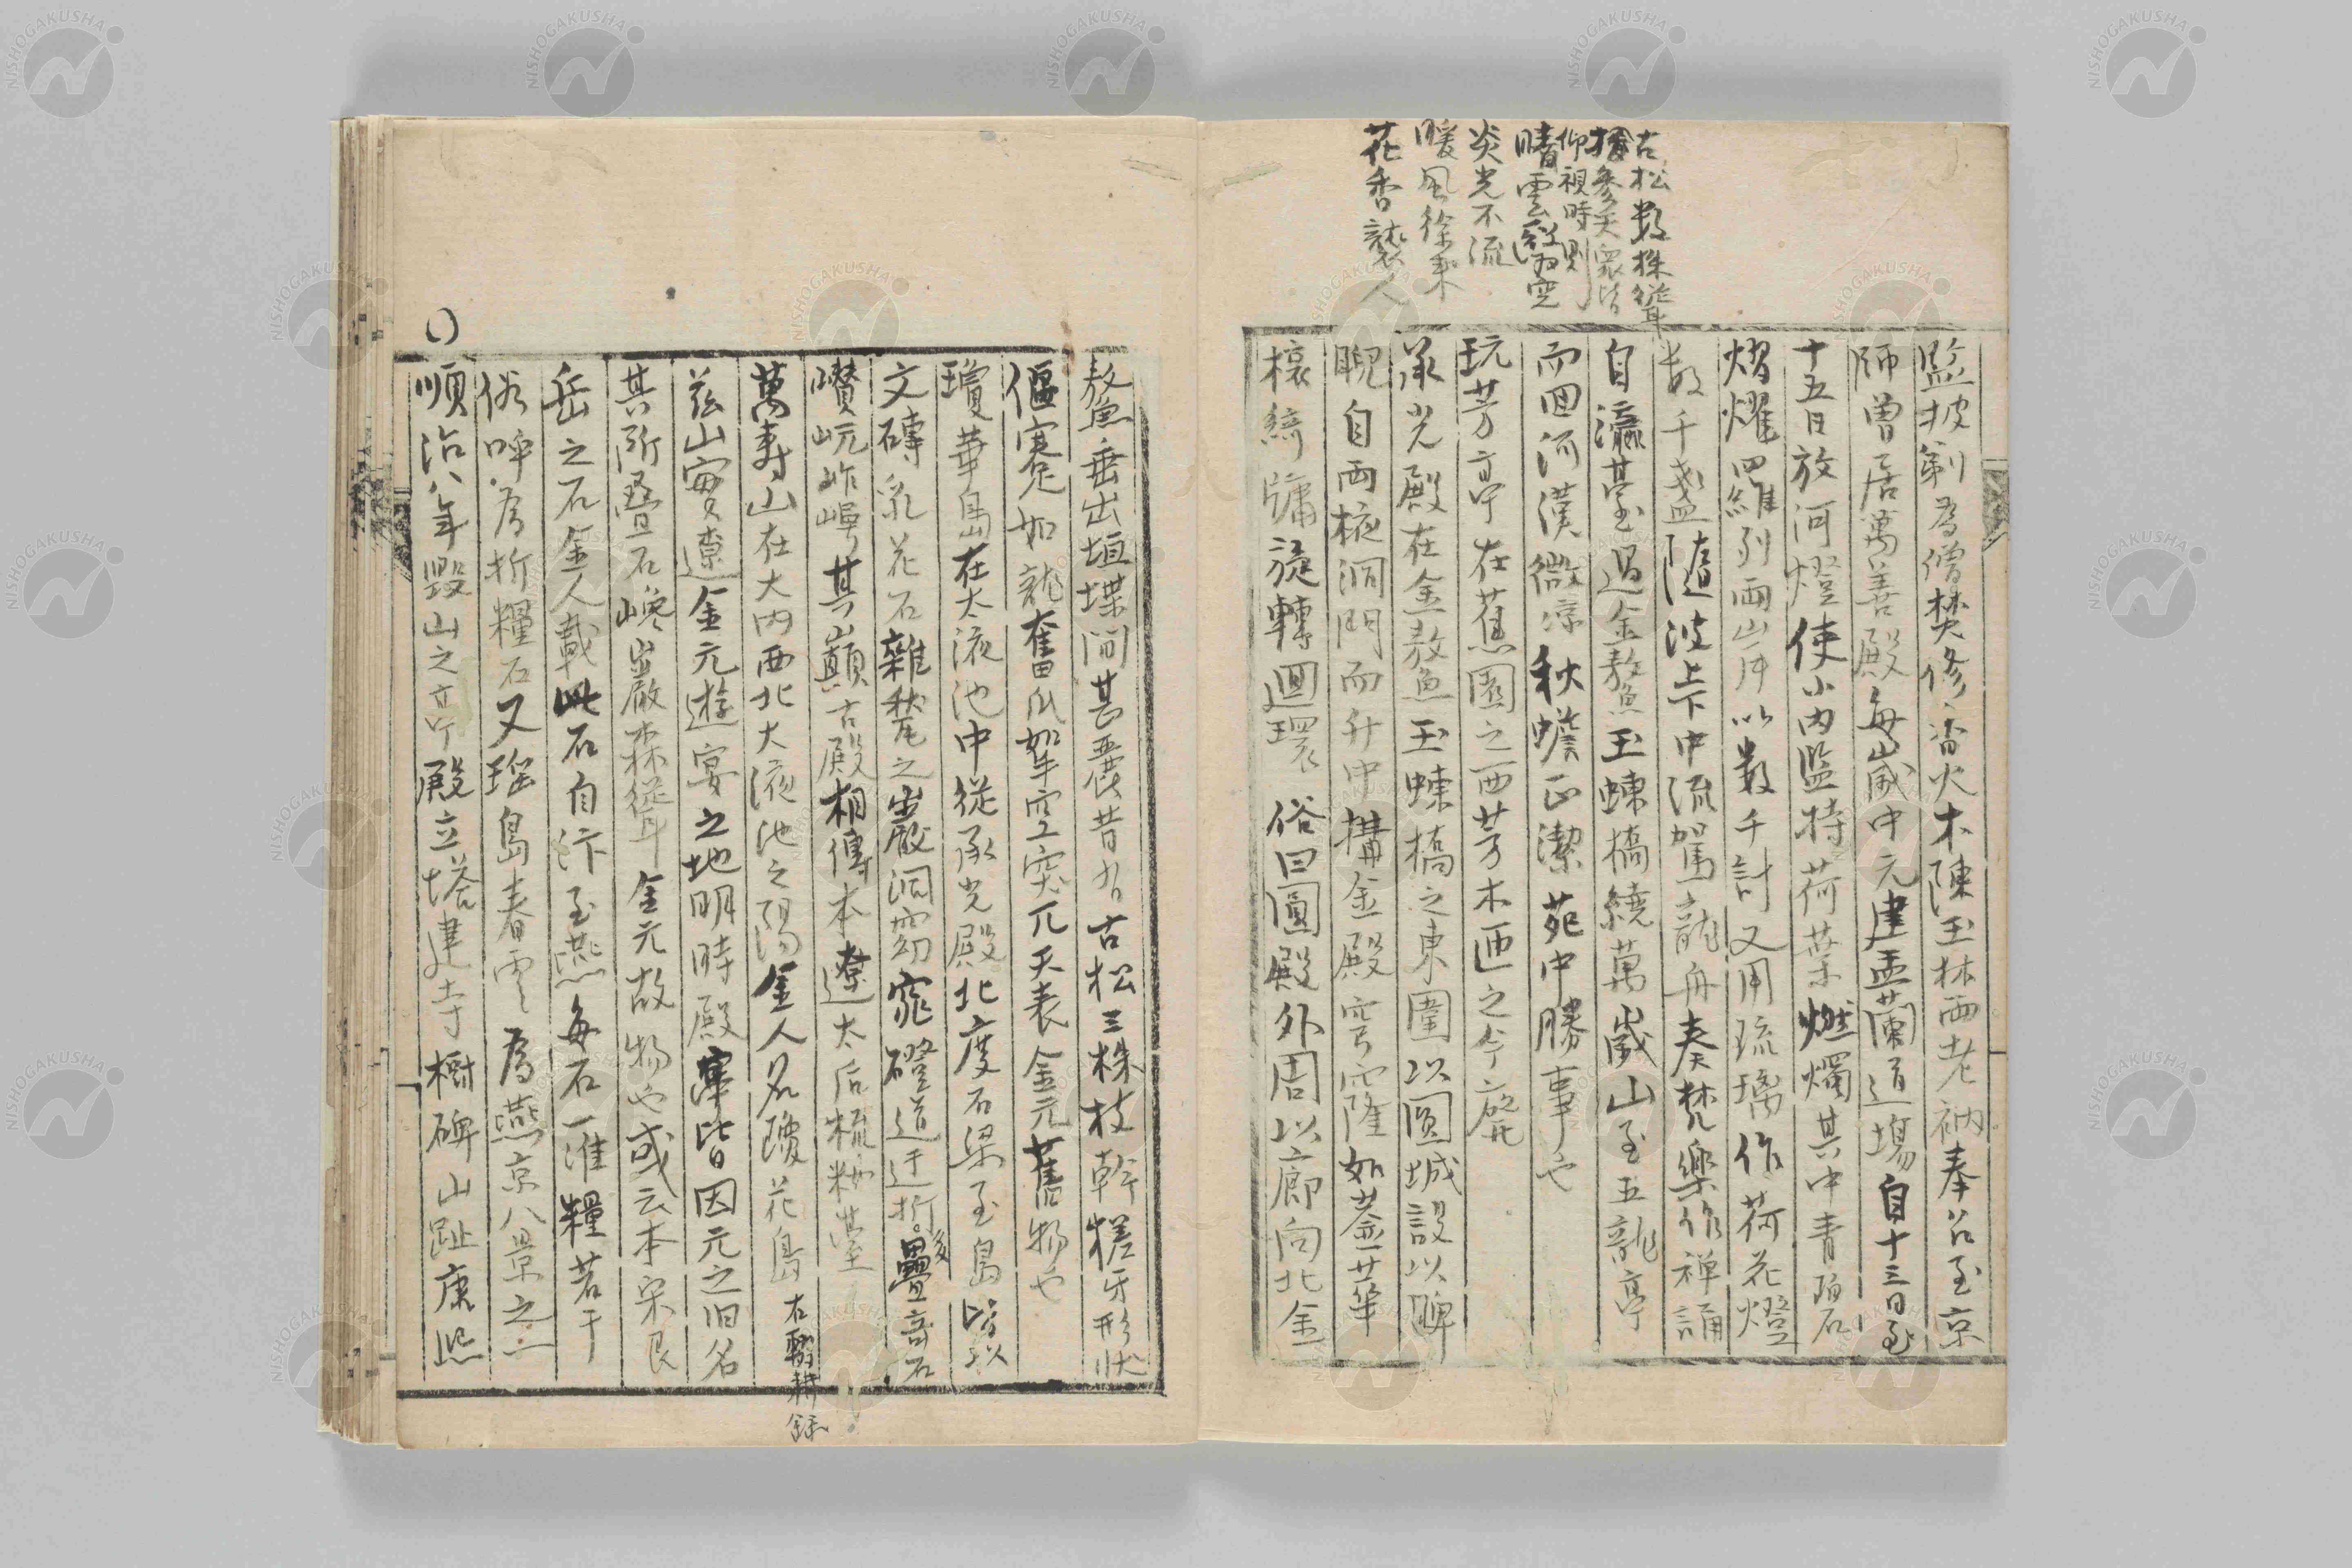 古松數株聳
參天衆皆
仰視時則
晴雲翳空
炎光不流
暖風徐來
花香襲人
監披剃為僧焚修香火木陳玉林兩老衲奉召至京
師曾居萬善殿每歲中元建盂蘭道場自十三日至
十五日放河燈使小內監持荷葉燃燭其中青碧
熠燿羅列兩岸以數千計又用琉璃作荷花燈
數千盞隨波上下中流駕龍舟奏梵樂作禪誦
自瀛臺過金鰲玉蝀橋繞萬歲山至五龍亭
而回河漢微涼秋蟾正潔苑中勝事也
玩芳亭在蕉園之西芳木匝之今廢
承光殿在金鰲玉蝀橋之東圍以圓城設以睥
睨自兩掖洞門而升中構金殿穹窿如蓋華
榱綺牖旋轉迴環 俗曰圓殿外周以廊向北金
鰲垂出垣堞間甚麗昔有古松三株枝幹槎牙形狀
偃蹇如龍奮爪拏空突兀天表金元舊物也
瓊華島在太液池中從承光殿北度石梁至島皆以
文磚乳花石雜甃之巖洞窈窕磴道迂折後疊奇石
巑岏岝崿其巔古殿相傳本遼太后梳粧臺
萬壽山在大內西北太液池之陽金人名瓊花島 右輟耕錄
茲山實遼金元遊宴之地明時殿寢皆因元之旧名
其所疊石巉巖森聳金元故物也或云本宋艮
岳之石金人載此石自汴至燕每石一準糧若干
俗呼為折糧石又瑤島春雲為燕京八景之一
順治八年毀山之亭殿立塔建寺樹碑山趾康熙
NISHOGAKUSHA